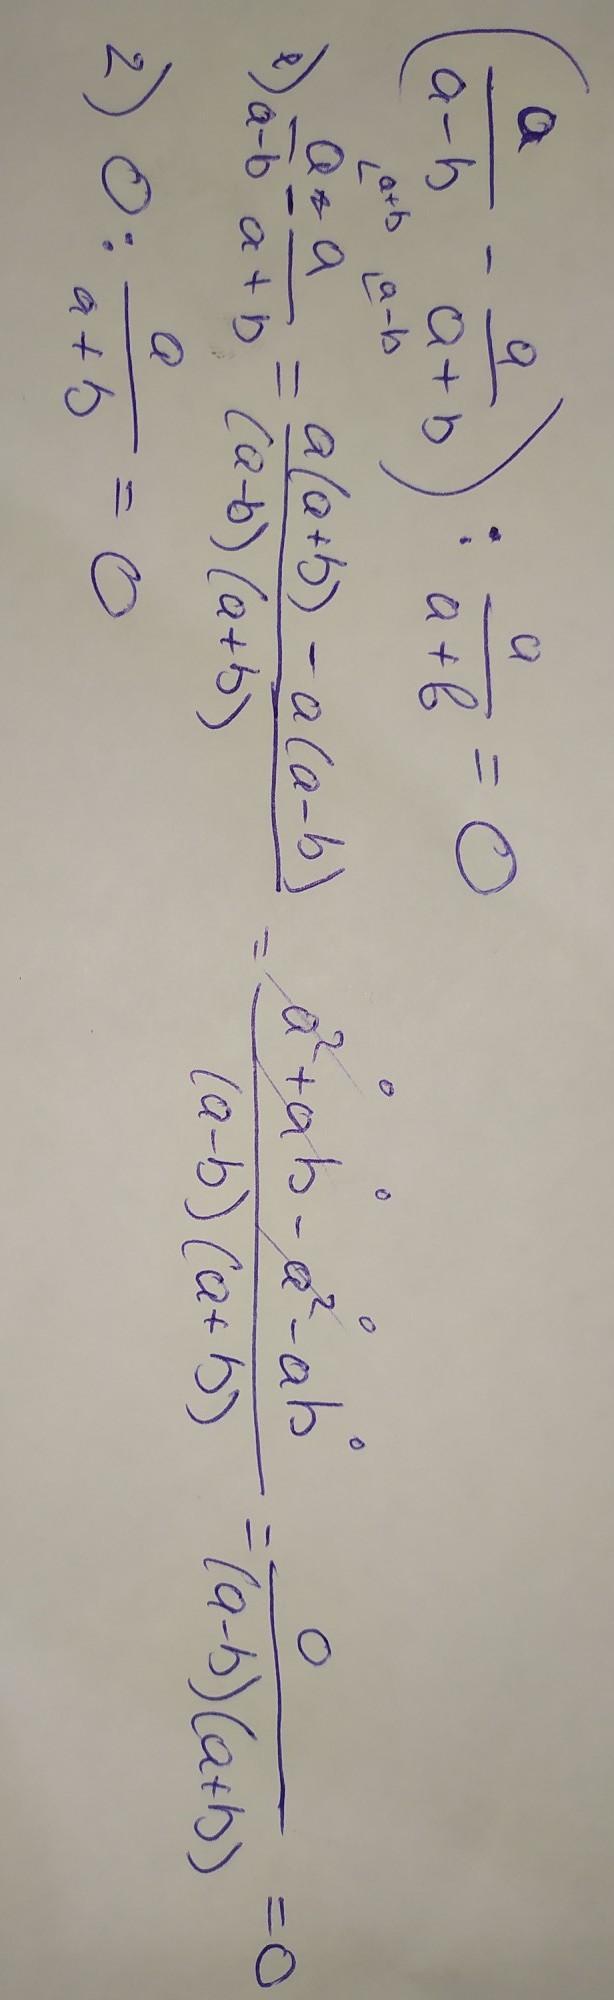 (a/(a-b) - a/(a+b)) : a/(a+b) = 0
1) a/(a-b) ⌞a+b - a/(a+b) ⌞a-b = (a(a+b) - a(a-b))/((a-b)(a+b)) = (a²+ab-a²-ab)/((a-b)(a+b)) = 0/((a-b)(a+b)) = 0
2) 0 : a/(a+b) = 0